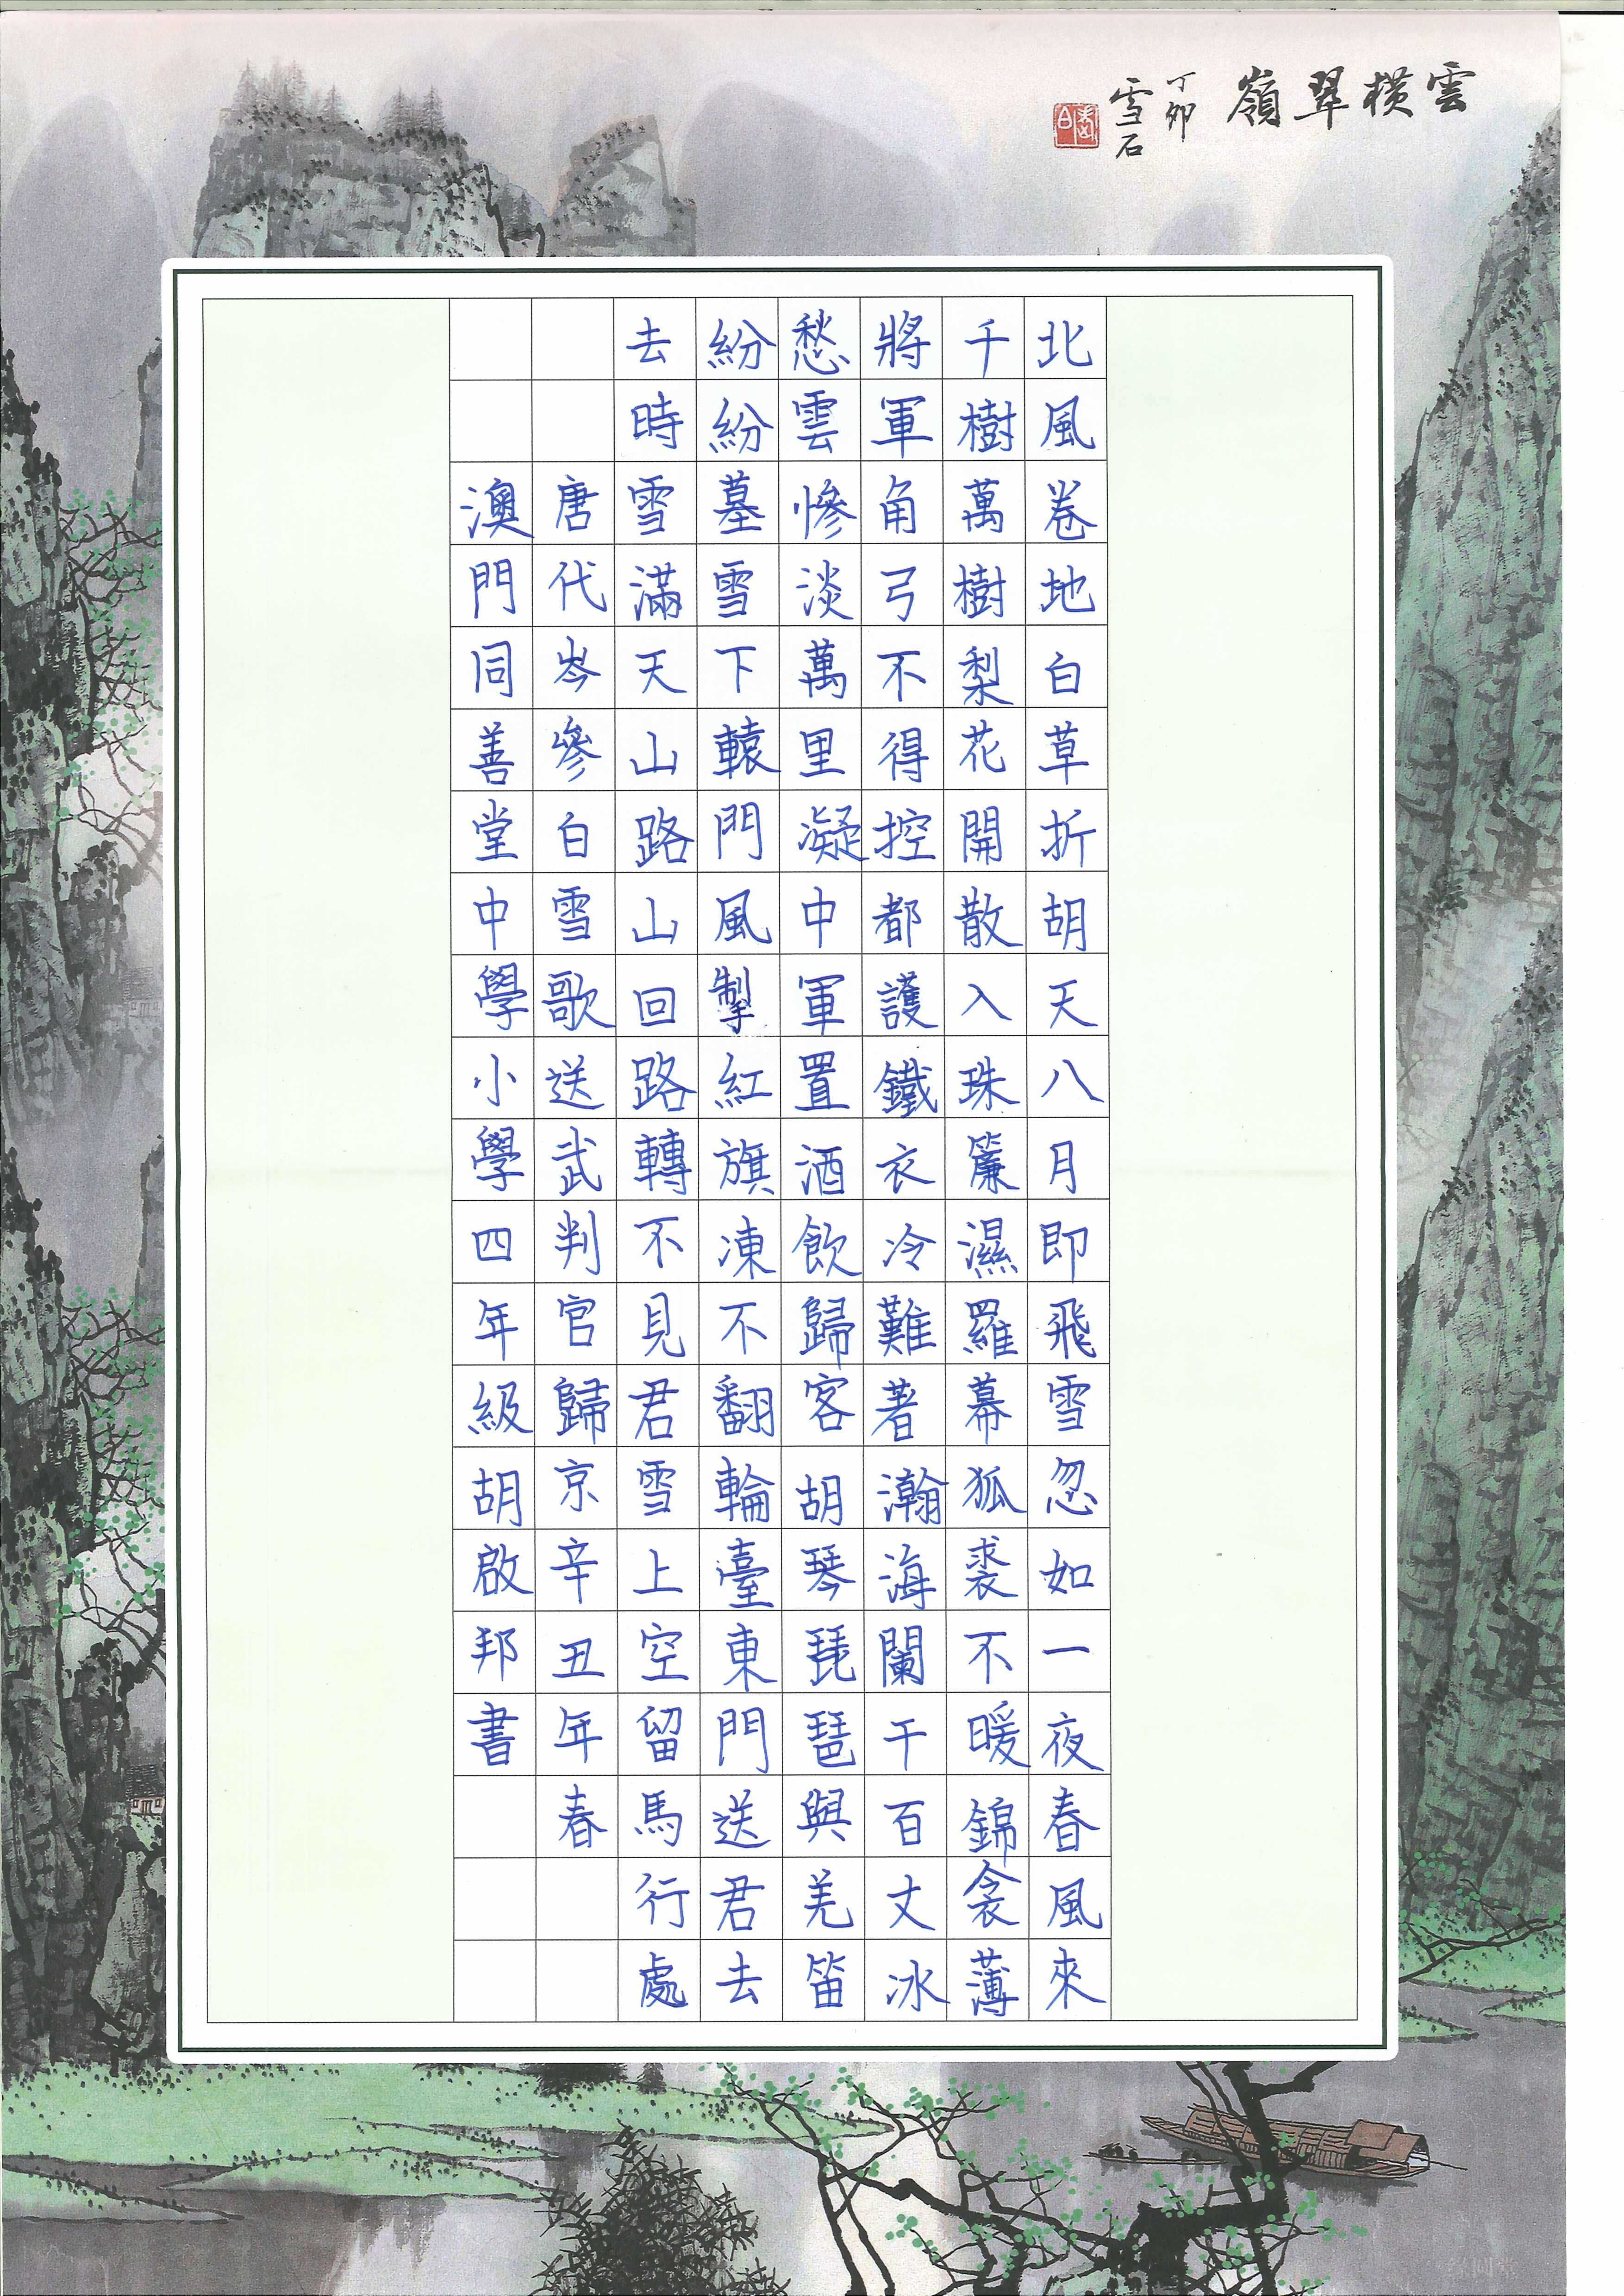 雲橫翠嶺
丁卯
雪石
北風卷地白草折胡天八月即飛雪忽如一夜春風來
千樹萬樹梨花開散入珠簾濕羅幕狐裘不暖錦衾薄
將軍角弓不得控都護鐵衣冷難著瀚海闌干百丈冰
愁雲慘淡萬里凝中軍置酒飲歸客胡琴琵琶與羌笛
紛紛墓雪下轅門風掣紅旗凍不翻輪臺東門送君去
去時雪滿天山路山回路轉不見君雪上空留馬行處
唐代岑參白雪歌送武判官歸京辛丑年春
澳門同善堂中學小學四年級胡啟邦書